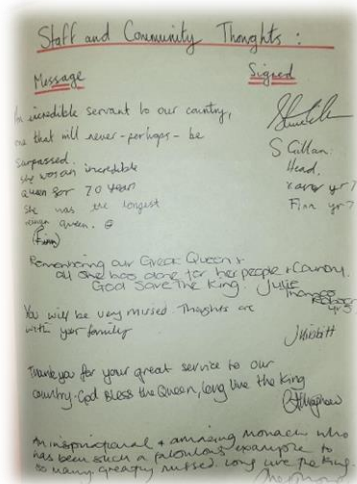 Staff and Community Thoughts :
Message Signed
An incredible servant to our country,
one that will never - perhaps - be
surpassed. S Gillan.
Head.
She was an incredible
queen for 70 years yr 7
She was the longest Finn yr 7
reign queen.
(Finn)
Remembering our Great Queen +
all she has done for her people + Country.
God Save The King. Julie
You will be very missed. Thoughts are
with your family J Nisbitt
Thank you for your great service to our
country - God Bless the Queen, long live the King
An inspirational + amazing monach who
has been such a fabulous example to
so many greatly missed. Long live the King.